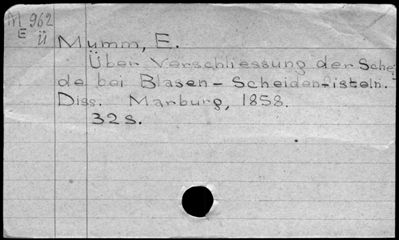 M 962
E
Ü
Mumm, E.
Über Verschliessung der Schei-
de bei Blasen-Scheidenfisteln.
Diss. Marburg, 1858.
32 S.